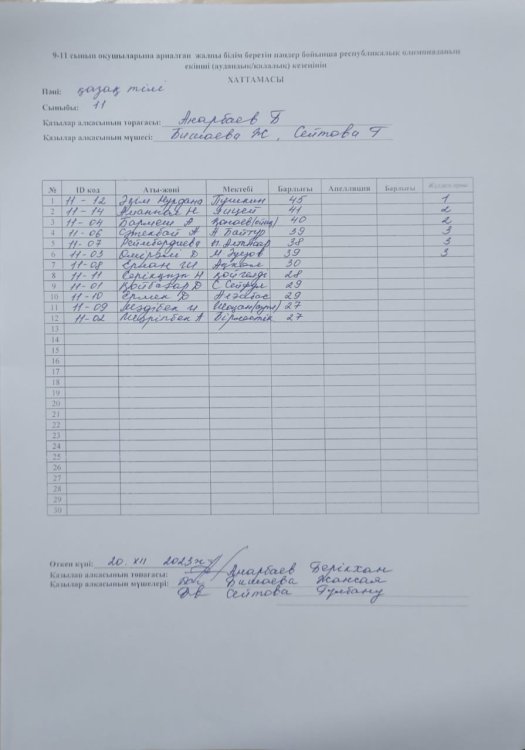 9-11 сынып оқушыларына арналған жалпы білім беретін пәндер бойынша республикалық олимпиаданың
екінші (аудандық/қалалық) кезеңінің
ХАТТАМАСЫ
Пәні: қазақ тілі
Сыныбы: 11
Қазылар алқасының төрағасы: Анарбаев Б
Қазылар алқасының мүшесі: Бишаева Ж, Сейтова Г
№ ID код Аты-жөні Мектебі Барлығы Апелляция Барлығы
1 11-12 Нұрдана Пушкин 45 1
2 11-14 Н Лицей 41 2
3 11-04 А 40 2
4 11-06 А А Байтұр 39 3
5 11-07 38 3
6 11-03 Д М Әуезов 39 3
7 11-08 Ерман 30
8 11-11 Серікқызы Н Қойгелді 28
9 11-01 Қойбағар Д 29
10 11-10 Ермек Алғабас 29
11 11-09 27
12 11-02 Шәріпбек А Бірлестік 27
13
14
15
16
17
18
19
20
21
22
23
24
25
26
27
28
29
30
Өткен күні: 20. XII 2023ж
Қазылар алқасының төрағасы: Анарбаев Берікхан
Қазылар алқасының мүшелері: Бишаева Жансая
Сейтова Гүлбану